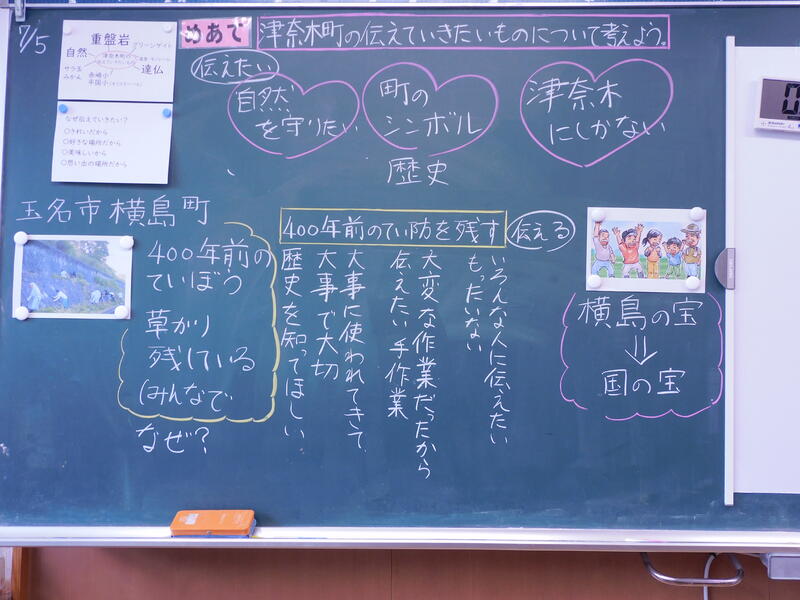 7/5
めあて
津奈木町の伝えていきたいものについて考えよう。
重盤岩
グリーンゲイト
自然
津奈木町の
伝えていきたいもの
サラ玉
みかん
赤崎小
平国小
達仏
なぜ伝えていきたい?
○きれいだから
○好きな場所だから
○美味しいから
○思い出の場所だから
伝えたい
自然
を守りたい
町の
シンボル
津奈木
にしかない
歴史
玉名市横島町
400年前の
ていぼう
草かり
残している
(みんなで
なぜ?
400年前のてい防を残す
伝える
いろんな人に伝えたい
もったいない
大変な作業だったから
伝えたい手作業
大事に使われてきて、
大事で大切
歴史を知ってほしい
横島の宝
⇓
国の宝